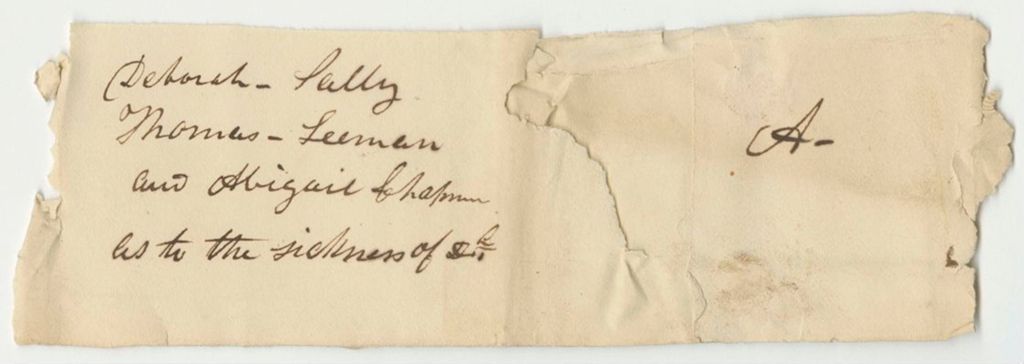 Deborah - Sally
Thomas - Leeman
and Abigail Chapman
as to the sickness of
A-